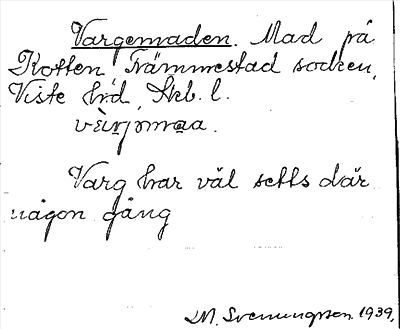 Vargemaden. Mad på
Kotten, Främmestad socken,
Viste hrd, Skb. l.
Varg har väl setts där
någon gång
M. Svenungsson 1939.